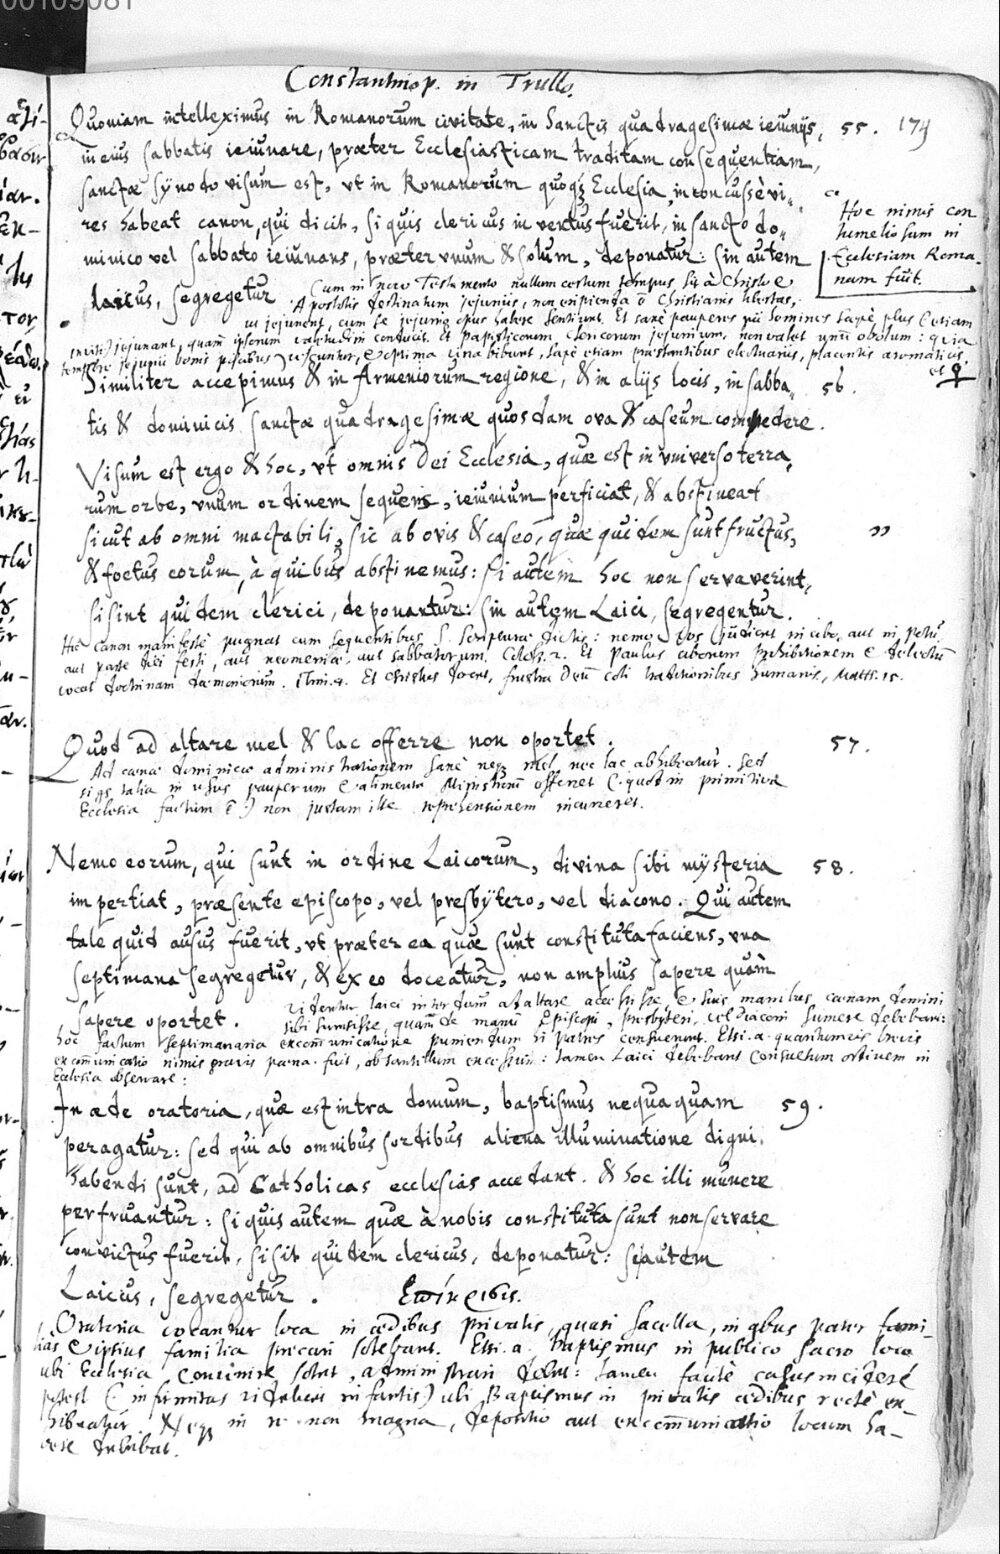 00109081
Constantinop. in Trullo.
Quoniam intelleximus in Romanorum civitate, in sanctis quadragesimæ ieiunijs, 55. 174
in eius sabbatis ieiunare, præter Ecclesiasticam traditam consequentiam,
sanctæ synodo visum est, vt in Romanorum quoqȝ Ecclesia, inconcussè vi-
res habeat canon, qui dicit, si quis clericus inventus fuerit, in sancto do-
minico vel sabbato ieiunans, præter vnum & solum, deponatur: sin autem
laicus, segregetur.
Hoc nimis con
tumeliosum in
Ecclesiam Roma-
nam fuit.
Cum in novo Testamento nullum certum tempus, sit à Christo &
Apostolis destinatum jejuniis, non eripienda ē Christianis libertas,
ut jejunent, cum se jejunio opus habere sentiunt. Et sanè pauperes sæpè plus (etiam
inviti) jejunant, quam ipsorum valetudini conducit. Et Papisticorum, clericorum jejunium, non valet unū obolum: quia
tempore jejunii bonis piscibus vescuntur, & optima vina bibunt, sæpè etiam præstantibus electuariis, placentis aromaticis,
Similiter accepimus & in Armeniorum regione, & in alijs locis, in sabba- 56.
tis & dominicis sanctæ quadragesimæ quosdam ova & caseum comedere.
Visum est ergo & hoc, vt omnis Dei Ecclesia, quæ est in vniverso terra-
rum orbe, vnum ordinem sequens, ieiunium perficiat, & abstineat
sicut ab omni mactabili, sic ab ovis & caseo, quæ quidem sunt fructus,
& foetus eorum, à quibus abstinemus: si autem hoc non servaverint,
si sint quidem clerici, deponantur: sin autem Laici, segregentur.
Hic canon manifestè pugnat cum sequentibus S. Scripturæ dictis: nemo vos iudicet in cibo, aut in potu,
aut parte diei festi, aut neomeniæ, aut sabbatorum. Coloss. 2. Et Paulus ciborum prohibitionem & delectum
vocat doctrinam dæmoniorum. 1 Tim. 4. Et Christus docet, frustra Deū coli traditionibus humanis, Matth. 15.
Quod ad altare mel & lac offerre non oportet. 57.
Ad cœnæ dominicæ administrationem sanè neqȝ mel, nec lac adhibeatur. Sed
si qs talia in usus pauperum & alimenta Ministrorū offerret (quod in primitiva
Ecclesia factum ē) non justam ille reprehensionem incurreret.
Nemo eorum, qui sunt in ordine Laicorum, divina sibi mysteria 58.
impertiat, præsente episcopo, vel presbytero, vel diacono. Qui autem
tale quid ausus fuerit, vt præter ea quæ sunt constituta faciens, vna
septimana segregetur, & ex eo doceatur, non amplius sapere quàm
sapere oportet.
Videntur laici interdum ad altare accessisse & suis manibus cœnam domini
sibi sumsisse, quam de manu Episcopi, presbyteri, vel Diaconi sumere debebant:
hoc factum septimanaria excommunicatione puniendum hi patres censuerunt. Etsi a. quantumvis brevis
excommunicatio nimis gravis pœna fuit, ob tantillum excessum: tamen Laici debebant consuetum ordinem in
Ecclesia observare:
In æde oratoria, quæ est intra domum, baptismus nequaquam 59.
peragatur: sed qui ab omnibus sordibus aliena illuminatione digni
habendi sunt, ad Catholicas ecclesias accedant, & hoc illi munere
perfruantur: si quis autem quæ à nobis constituta sunt non servare
convictus fuerit, si sit quidem clericus, deponatur: si autem
Laicus, segregetur.
Oratoria vocantur loca in ædibus privatis, quasi sacella, in qbus pater fami-
lias & ipsius familia precari solebant. Etsi. a. baptismus in publico sacro loco
ubi Ecclesia convenire solet, administrari debet: tamen facilè casus incidere
potest (infirmitas videlicet infantis) ubi Baptismus in privatis ædibus rectè ex-
hibeatur. Neqȝ in re non magna, depositio aut excommunicatio locum ha-
bere debebat.